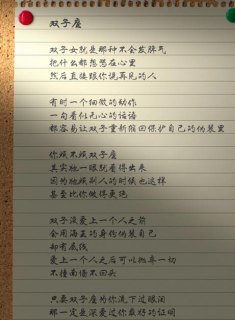 双子座
双子女就是那种不会发脾气
把什么都憋憋在心里
然后直接跟你说再见的人
有时一个细微的动作
一句看似无心的话语
都容易让双子重新缩回保护自己的伪装里
你烦不烦双子座
其实她一眼就看得出来
因为她烦别人的时候也这样
甚至比你做得更绝
双子没爱上一个人之前
会用海王的身份伪装自己
却有底线
爱上一个人之后可以抛弃一切
不撞南墙不回头
只要双子座为你流下过眼泪
那一定是深爱过你最好的证明